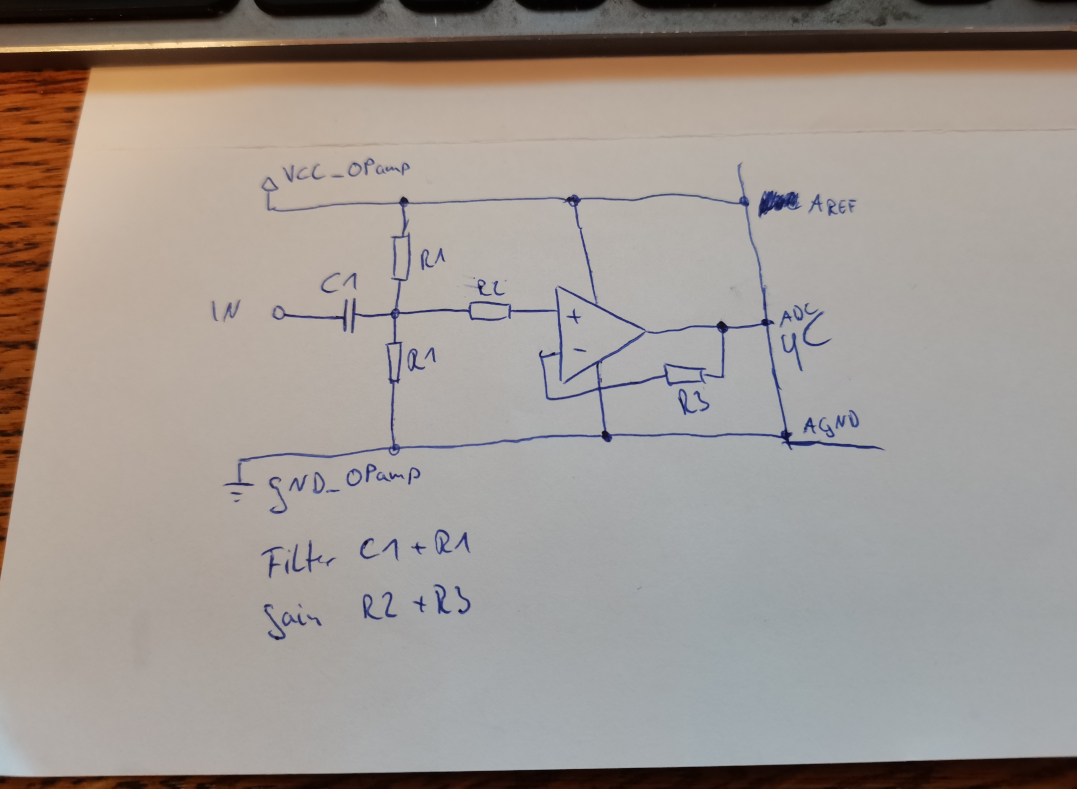 VCC_OPamp
AREF
R1
C1
R2
IN
+
ADC
µC
-
R1
R3
AGND
GND_OPamp
Filter C1 + R1
Gain R2 + R3